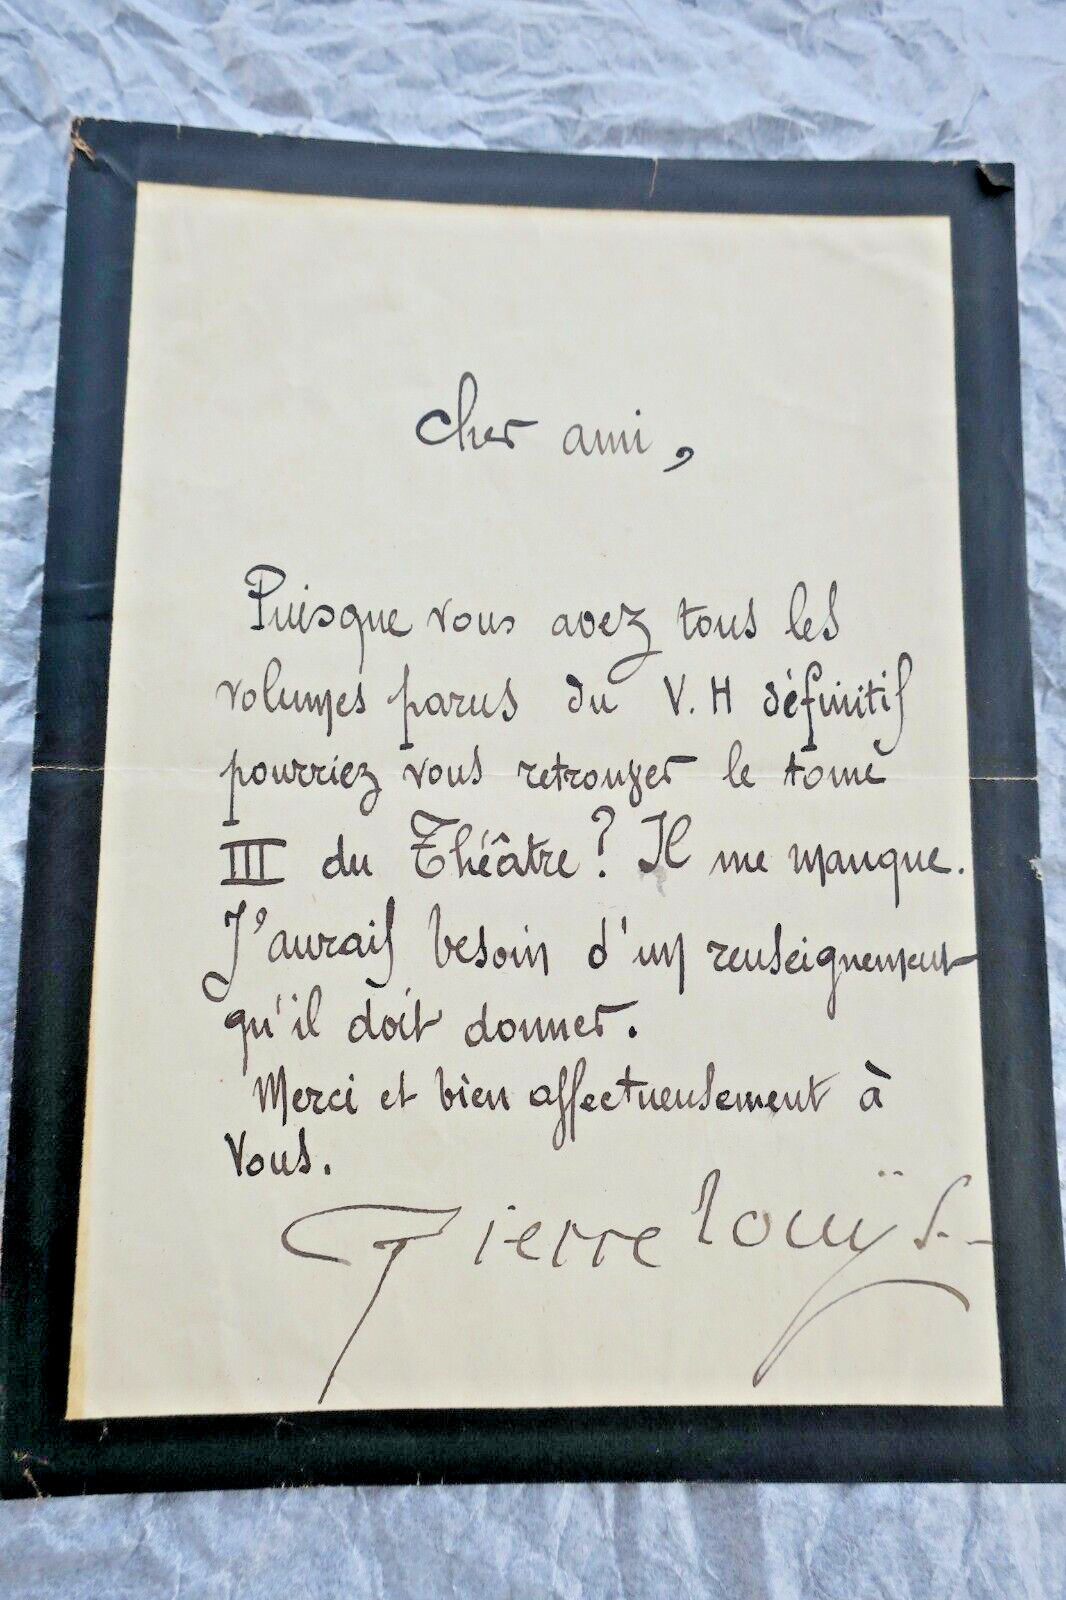 Cher ami,
Puisque vous avez tous les
volumes parus du V. H définitif
pourriez vous retrouver le tome
III du Théâtre? Il me manque.
J'aurais besoin d'un renseignement
qu'il doit donner.
Merci et bien affectueusement à
vous.
Pierre Louÿs.